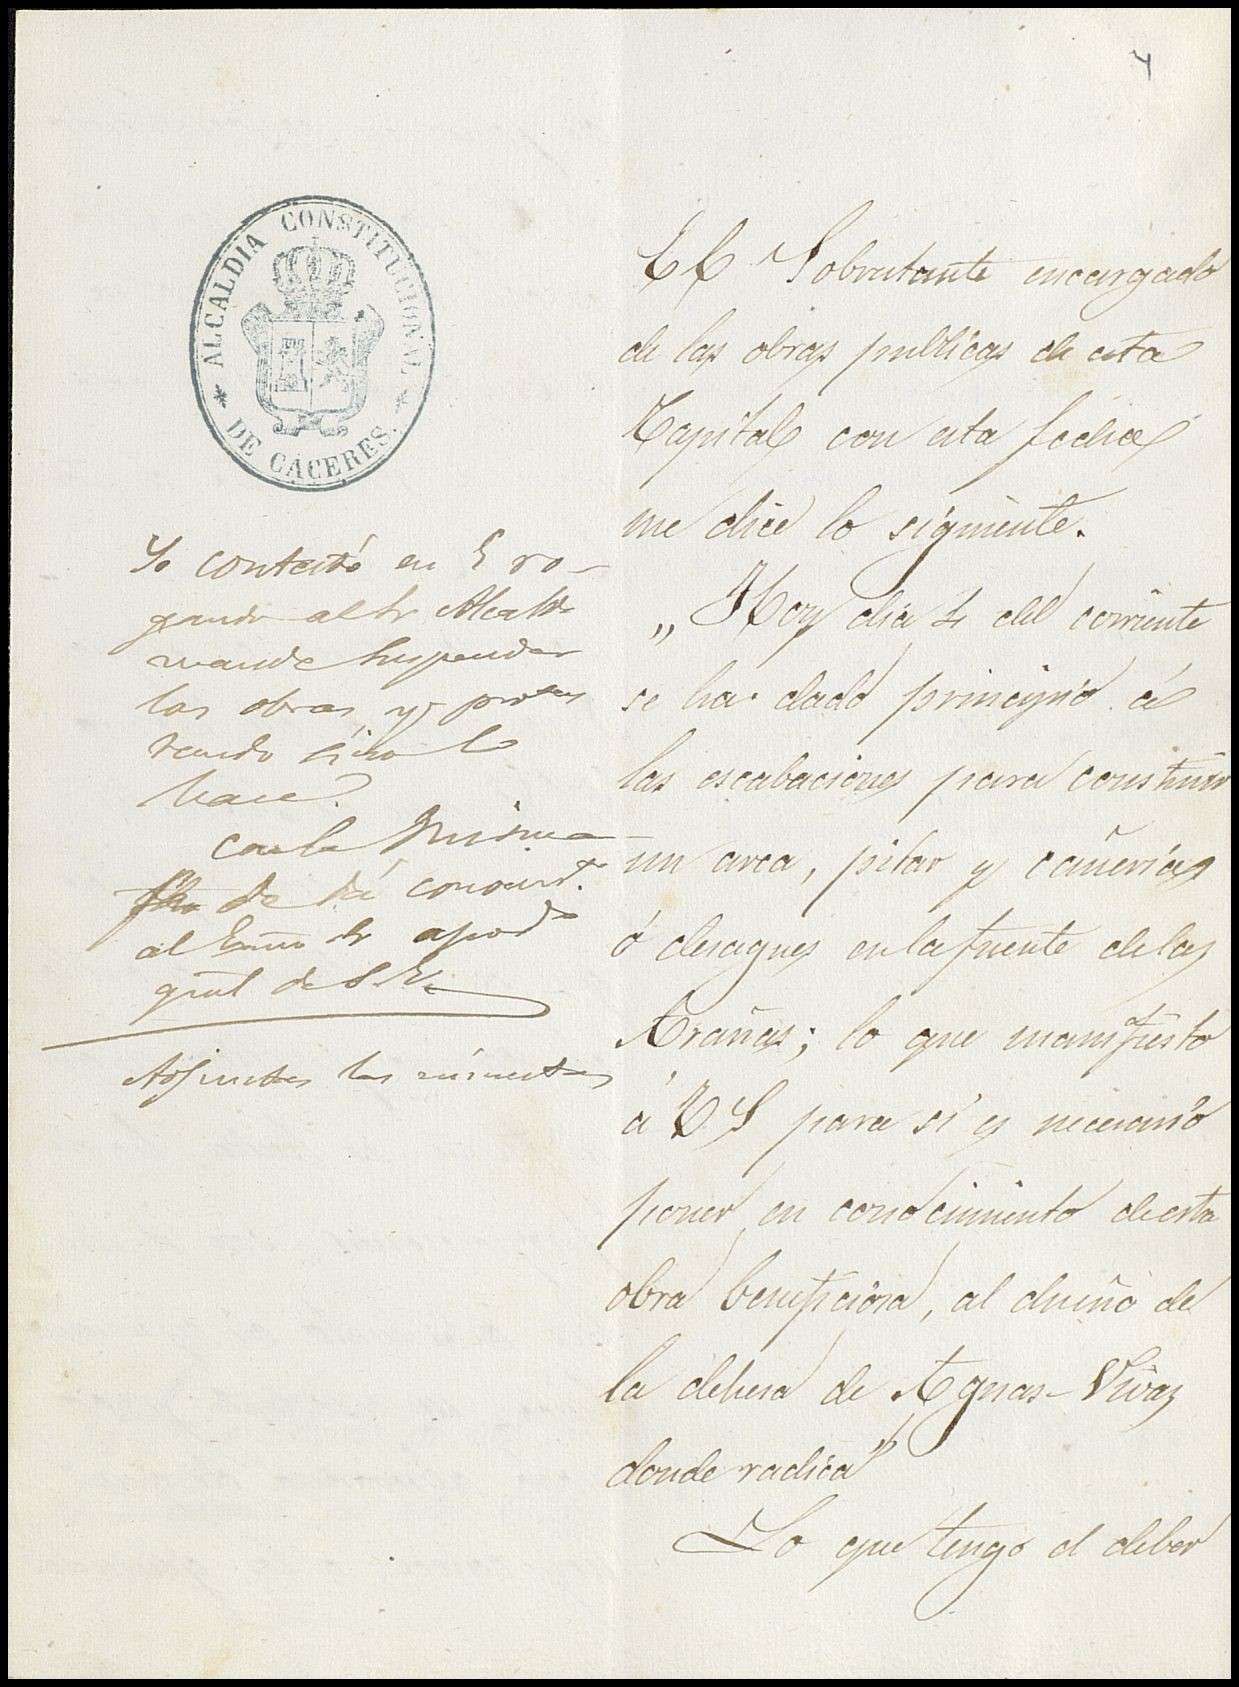 4
ALCALDIA CONSTITUCIONAL
* DE CACERES. *
Se contestó en 5 ro-
gando al Sr Alcalde
mande suspender
las obras, y protes
tando sino lo
hace.
Con la misma
fha se dá conocimto.
al Exmo Sr apodo
gral de S. E.
Adjuntas las minutas
El Sobrestante encargado
de las obras publicas de esta
Capital con esta fecha
me dice lo siguiente.
"Hoy dia 4 del corriente
se ha dado principio á
las escabaciones para construir
un arca, pilar y cañerias
ó desagues en la fuente de las
Arañas; lo que manifiesto
á V S para si es necesario
poner en conocimiento de esta
obra beneficiosa, al dueño de
la dehesa de Aguas-Vivas
donde radica"
Lo que tengo el deber